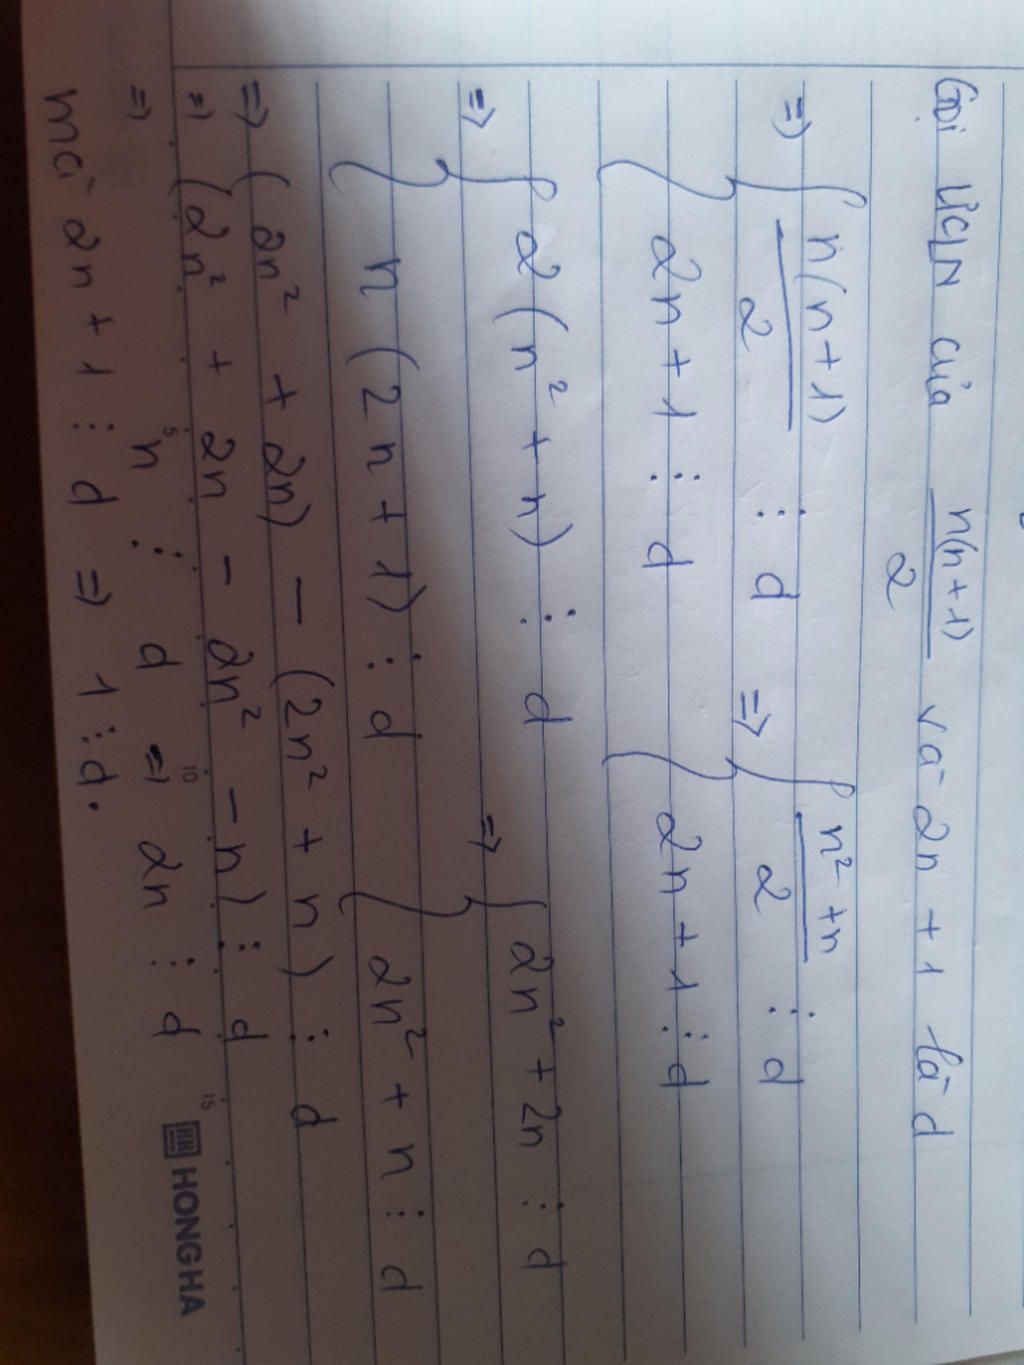 Gọi ƯCLN của n(n+1)/2 và 2n + 1 là d
=> { n(n+1)/2 ⋮ d => { n² + n / 2 ⋮ d
2n + 1 ⋮ d 2n + 1 ⋮ d
=> { 2(n² + n) ⋮ d => { 2n² + 2n ⋮ d
n(2n + 1) ⋮ d 2n² + n ⋮ d
=> (2n² + 2n) − (2n² + n) ⋮ d
=> (2n² + 2n − 2n² − n) ⋮ d
=> n ⋮ d => 2n ⋮ d
mà 2n + 1 ⋮ d => 1 ⋮ d.
5 10 15
HONG HA